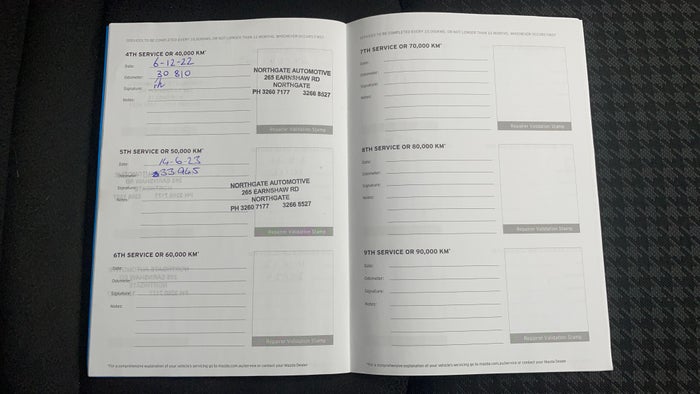 SERVICES TO BE COMPLETED EVERY 10,000KM, OR NOT LONGER THAN 12 MONTHS, WHICHEVER OCCURS FIRST
4TH SERVICE OR 40,000 KM*
Date: 6-12-22
Odometer: 30 810
Signature:
Notes:
NORTHGATE AUTOMOTIVE
265 EARNSHAW RD
NORTHGATE
PH 3260 7177 3266 8527
Repairer Validation Stamp
5TH SERVICE OR 50,000 KM*
Date: 14-6-23
Odometer: 33945
Signature:
Notes:
NORTHGATE AUTOMOTIVE
265 EARNSHAW RD
NORTHGATE
PH 3260 7177 3266 8527
Repairer Validation Stamp
6TH SERVICE OR 60,000 KM*
Date:
Odometer:
Signature:
Notes:
Repairer Validation Stamp
*For a comprehensive explanation of your vehicle's servicing go to mazda.com.au/service or contact your Mazda Dealer
SERVICES TO BE COMPLETED EVERY 10,000KM, OR NOT LONGER THAN 12 MONTHS, WHICHEVER OCCURS FIRST
7TH SERVICE OR 70,000 KM*
Date:
Odometer:
Signature:
Notes:
Repairer Validation Stamp
8TH SERVICE OR 80,000 KM*
Date:
Odometer:
Signature:
Notes:
Repairer Validation Stamp
9TH SERVICE OR 90,000 KM*
Date:
Odometer:
Signature:
Notes:
Repairer Validation Stamp
*For a comprehensive explanation of your vehicle's servicing go to mazda.com.au/service or contact your Mazda Dealer